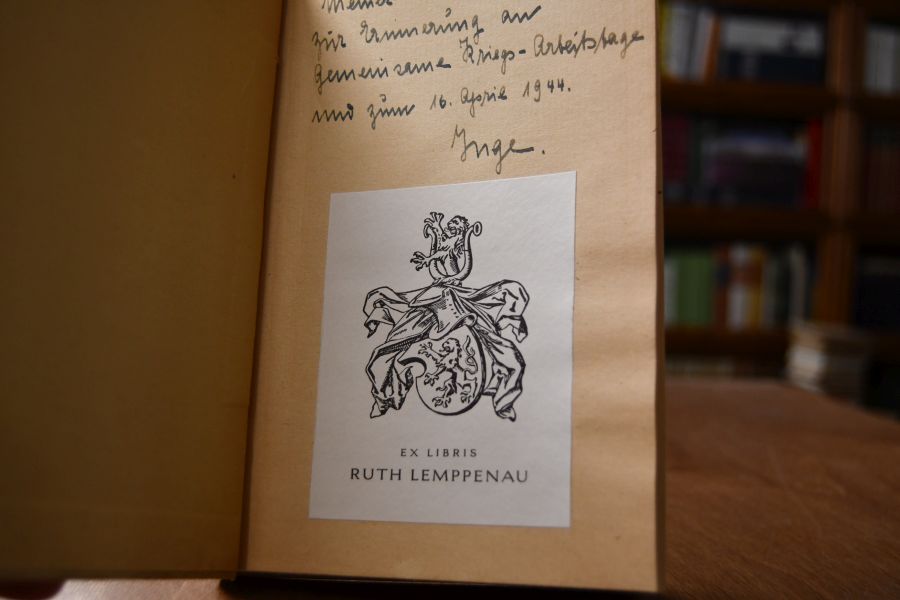 Meiner
zur Erinnerung an
Gemeinsame Kriegs-Arbeitstage
und zum 16. April 1944.
Inge.
EX LIBRIS
RUTH LEMPPENAU